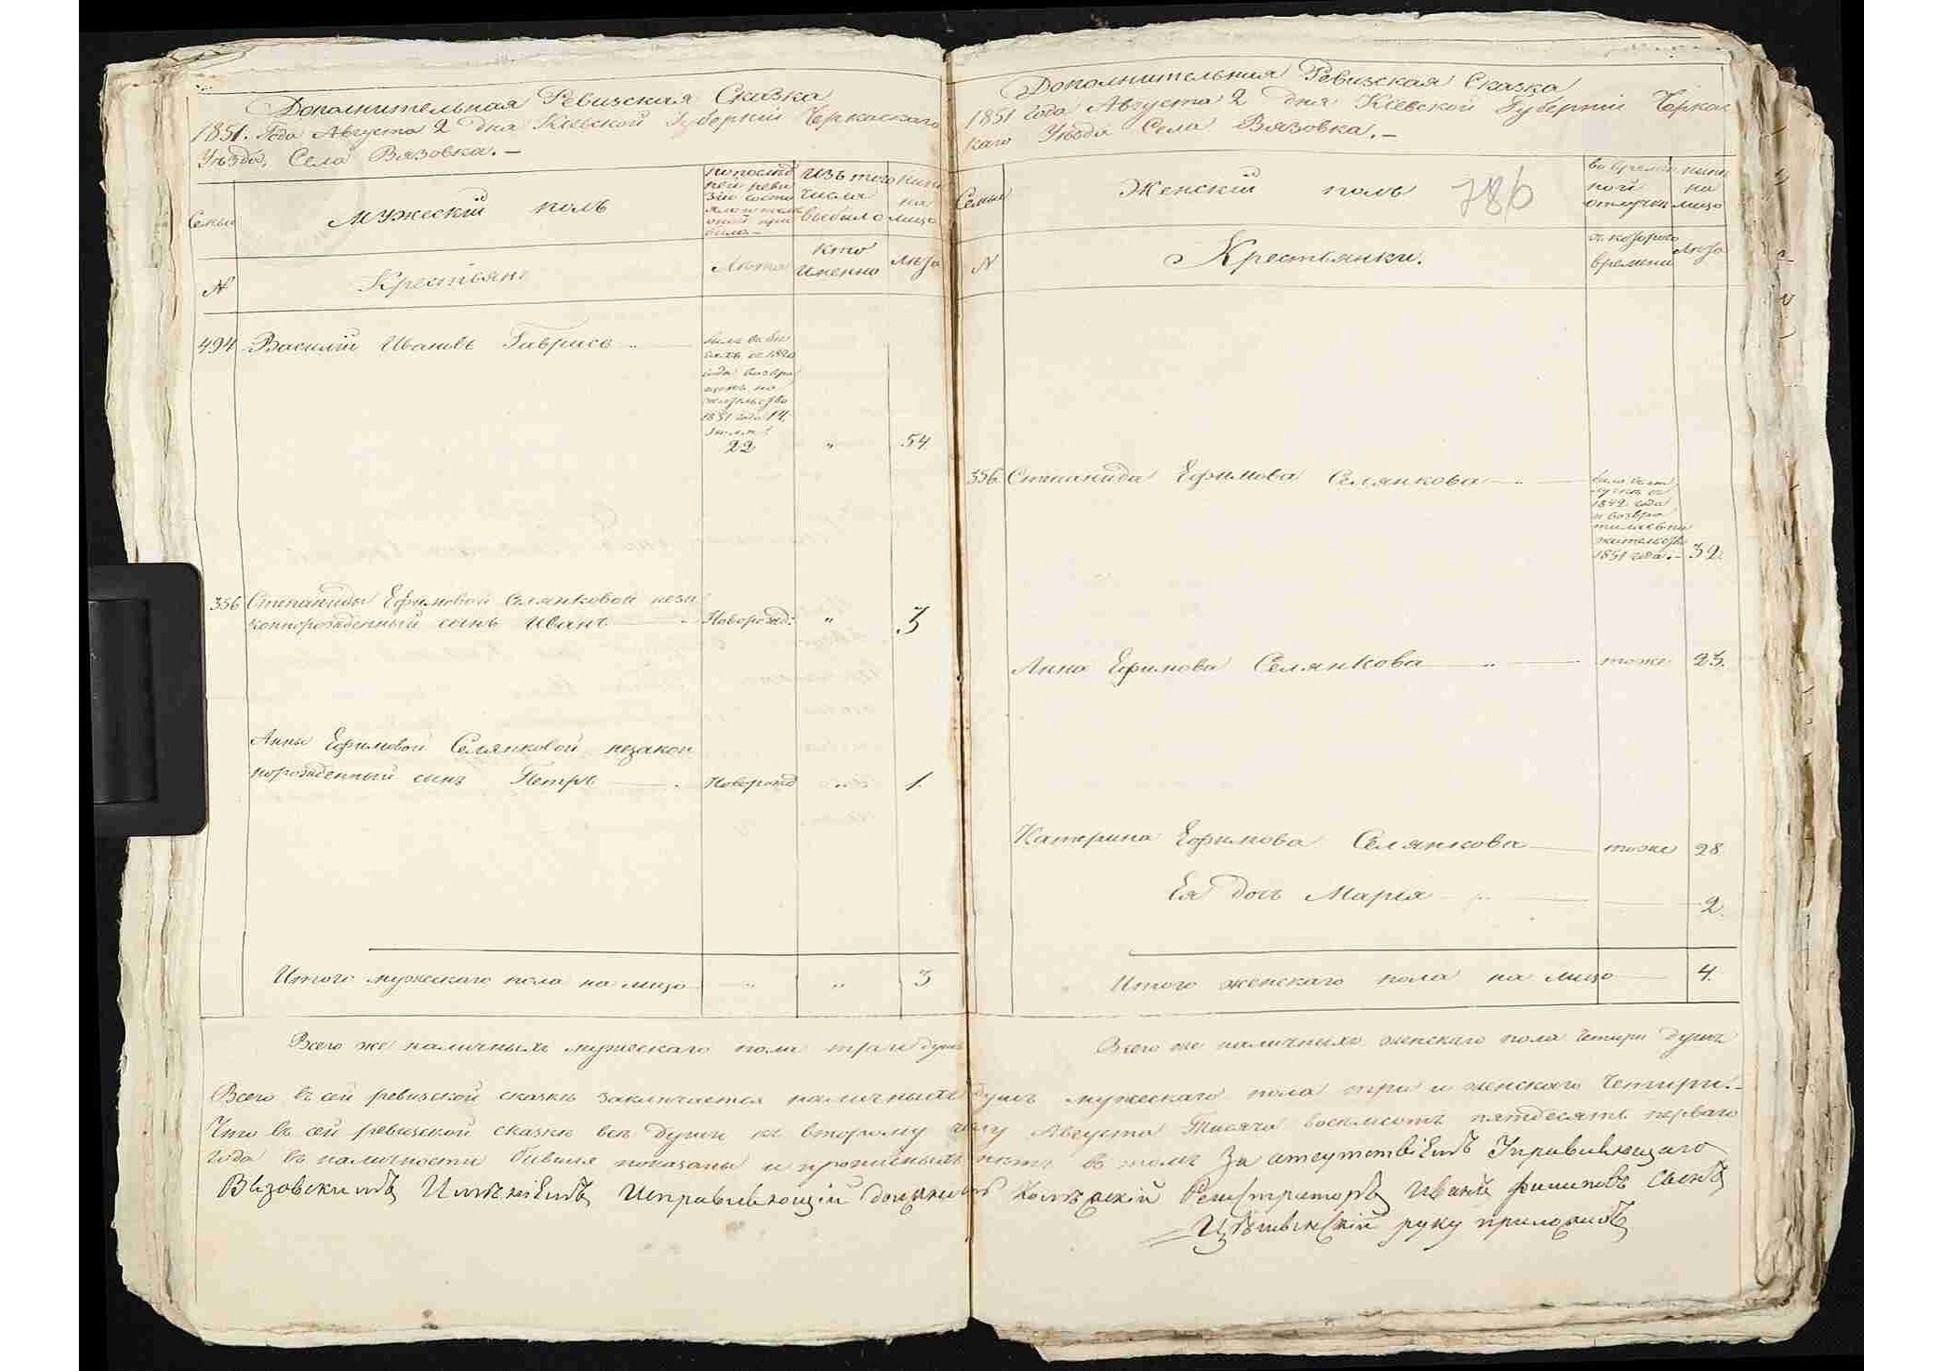 Дополнительная Ревизская Сказка
1851. Года Августа 2 Дня Кіевской Губерніи Черкаскаго
Уѣзда, Села Вязовка. –
Семьи
Мужескій полъ
По послѣд
ней реви
зіи состо
яло и
послѣ
оной при
было
Изъ того
числа
выбыло
Нынѣ
на
лицо
N
Крестьяне
Лѣта
Кто
именно
Лѣта
494 Василій Ивановъ Габрись
былъ въ бѣ
гахъ съ 1820
года возвра
щенъ на
жительство
1851 года 14.
22 „ 54.
356 Степаниды Ефимовой Селянковой неза
коннорожденный сынъ Иванъ Новорожд: „ 3
Анны Ефимовой Селянковой незакон
норожденный сынъ Петръ Новорожд „ 1.
Итого мужескаго пола на лицо „ „ 3
Всего же наличныхъ мужескаго пола три души
Дополнительная Ревизская Сказка
1851 Года Августа 2 Дня Кіевской Губерніи Черкас
каго Уѣзда Села Вязовка. –
Семьи
Женскій полъ
786
во времен
ной
отлучкѣ
нынѣ
на
лицо
N
Крестьянки.
съ котораго
времени
Лѣта
356. Степанида Ефимова Селянкова
была въ от
лучкѣ съ
1842 года
и возвра
тилась на
жительство
1851 года. – 32.
Анна Ефимова Селянкова тоже 23.
Катерина Ефимова Селянкова тоже 28
Ея дочь Марія 2.
Итого женскаго пола на лицо 4.
Всего же наличныхъ женскаго пола четыри души
Всего въ сей ревизской сказкѣ заключается наличныхъ душъ мужескаго пола три и женскаго четыри. –
Что въ сей ревизской сказкѣ всѣ души къ второму числу Августа Тысяча восемьсотъ пятдесятъ перваго
года въ наличности бывшія показаны и прописныхъ нѣтъ въ томъ За отсутствіемъ Управляющаго
Вязовскимъ Имѣніемъ Исправляющій должность Колежскій Регистраторъ Иванъ Филиповъ Сынъ
руку приложилъ